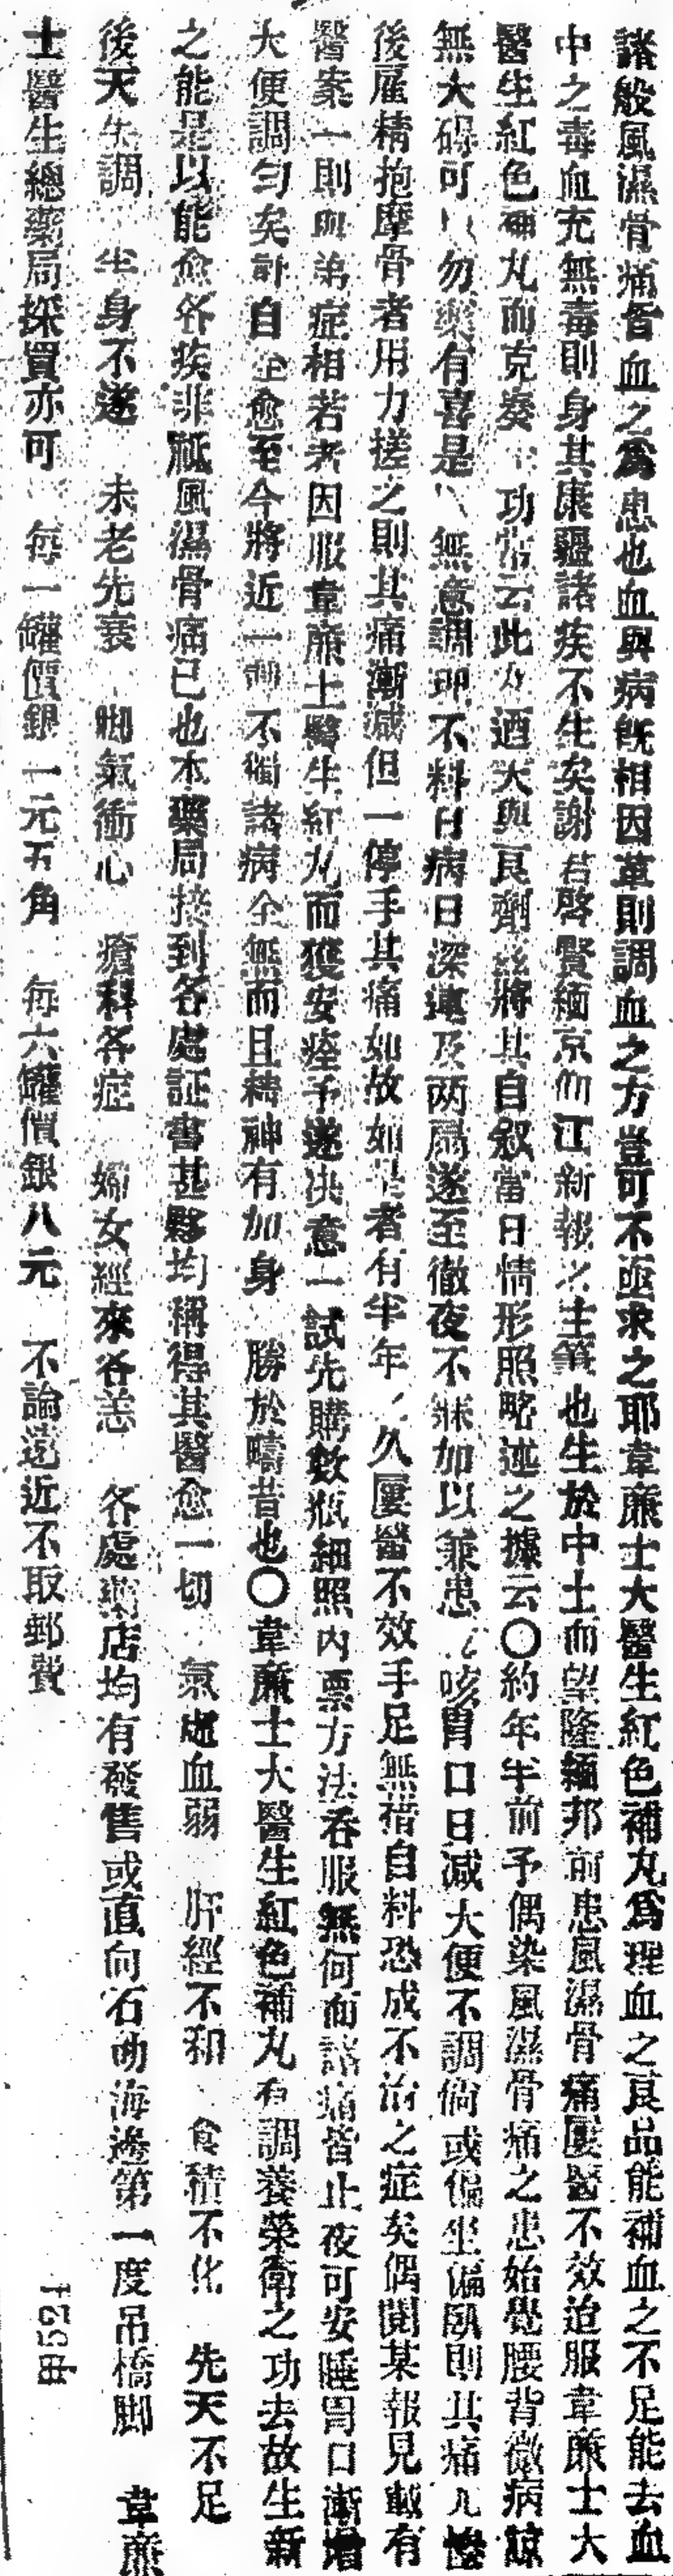 諸般風濕骨痛皆血之爲患也血與病旣相因革則調血之方豈可不亟求之耶韋廉士大醫生紅色補丸爲理血之良品能補血之不足能去血
中之毒血充無毒則身其康疆諸疾不生矣謝君啓賢緬京仰江新報之主筆也生於中土而望隆緬邦前患風濕骨痛屢醫不效迨服韋廉士大
醫生紅色補丸而克奏 功常云此乃酒大與良劑茲將其自叙當日情形照略述之據云〇約年半前予偶染風濕骨痛之患始覺腰背微病諒
無大碍可以勿藥有喜是以無意調理不料日病日深連及兩肩遂至徹夜不寐加以兼患 咳胃口日減大便不調倘或偏坐偏臥則其痛尤慘
後雇精抱摩骨者用力搓之則其痛漸減但一停手其痛如故如是者有半年之久屢醫不效手足無措自料恐成不治之症矣偶閱某報見載有
醫案一則與弟症相若者因服韋廉士醫生紅丸而獲安痊予遂决意一試先購數瓶細照内票方法呑服無何而諸痛皆止夜可安睡胃口漸增
大便調勻矣計自全愈至今將近一 不獨諸病全無而且精神有加身 勝於疇昔也〇韋廉士大醫生紅色補丸有調養榮衛之功去故生新
之能是以能愈各疾非祗風濕骨痛已也本藥局接到各處証書甚夥均稱得其醫愈一切 氣虛血弱 肝經不和 食積不化 先天不足
後天失調 半身不遂 未老先衰 脚氣衝心 瘡科各症 婦女經來各恙 各處藥店均有發售或直向石叻海邊第一度吊橋脚 韋廉
士醫生總藥局採買亦可 每一罐價銀一元五角 每六罐價銀八元 不論遠近不取郵費
甲521